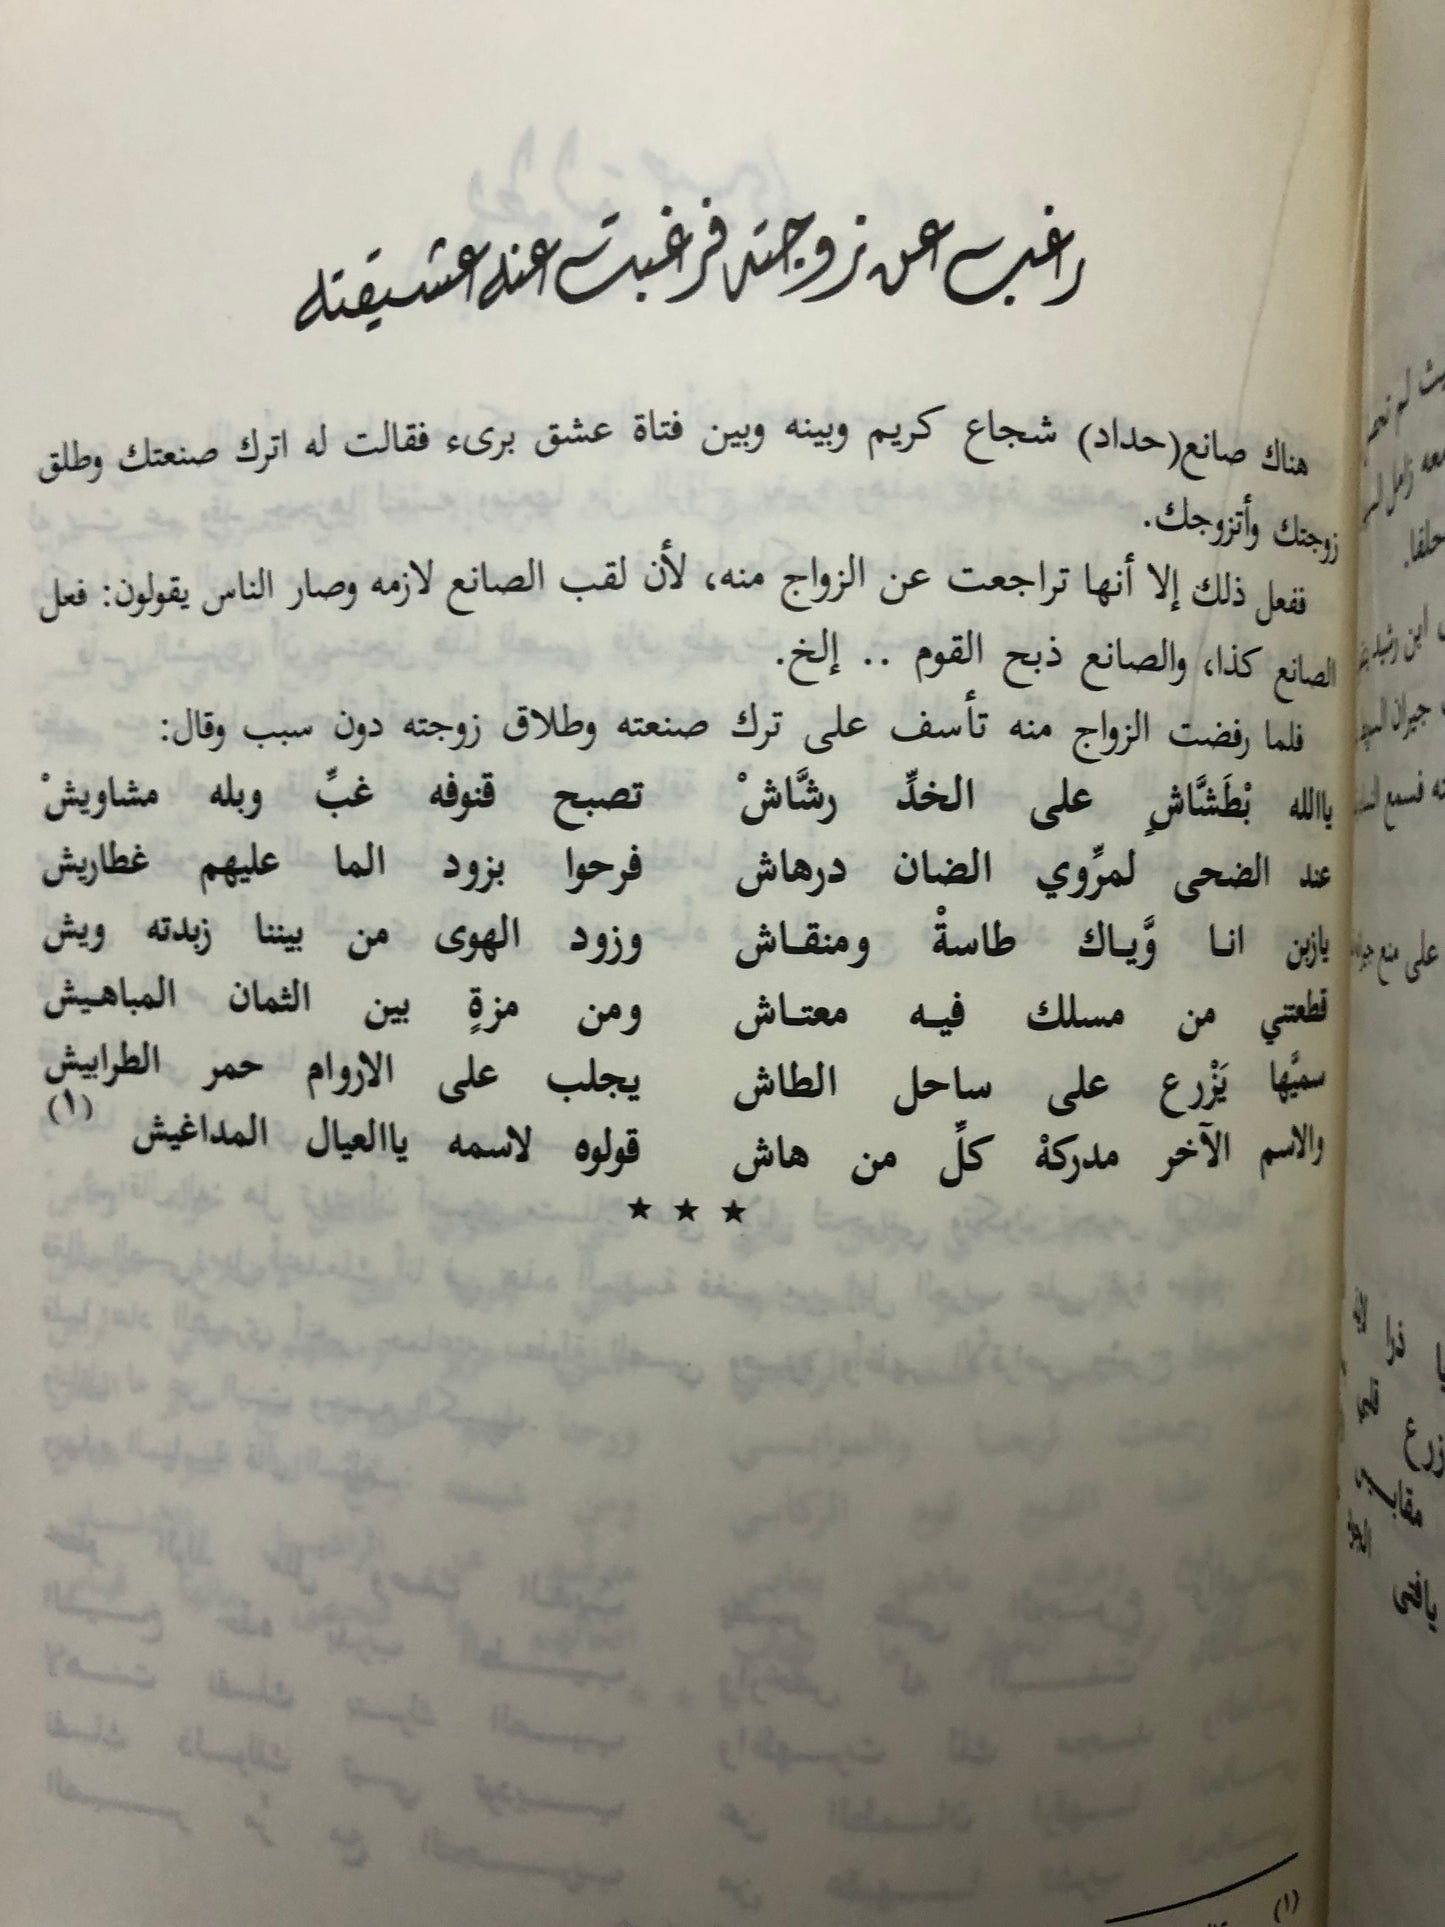 رغب عن زوجته فرغبت عنه عشيقته
هناك صانع(حداد) شجاع كريم وبينه وبين فتاة عشق برىء فقالت له اترك صنعتك وطلق
زوجتك وأتزوجك.
ففعل ذلك إلا أنها تراجعت عن الزواج منه، لأن لقب الصانع لازمه وصار الناس يقولون: فعل
الصانع كذا، والصانع ذبح القوم .. إلخ.
فلما رفضت الزواج منه تأسف على ترك صنعته وطلاق زوجته دون سبب وقال:
ياالله بْطَشَّاشٍ على الخدِّ رشَّاشْ تصبح قنوفه غبِّ وبله مشاويشْ
عند الضحى لمرِّوي الضان درهاش فرحوا بزود الما عليهم غطاريش
يازين انا وَّياك طاسةْ ومنقاش وزود الهوى من بيننا زبدته ويش
قطعتني من مسلك فيه معتاش ومن مزةٍ بين الثمان المباهيش
سميَّها يَزْرع على ساحل الطاش يجلب على الاروام حمر الطرابيش
والاسم الآخر مدركهْ كلِّ من هاش قولوه لاسمه ياالعيال المداغيش (١)
★ ★ ★
(١)